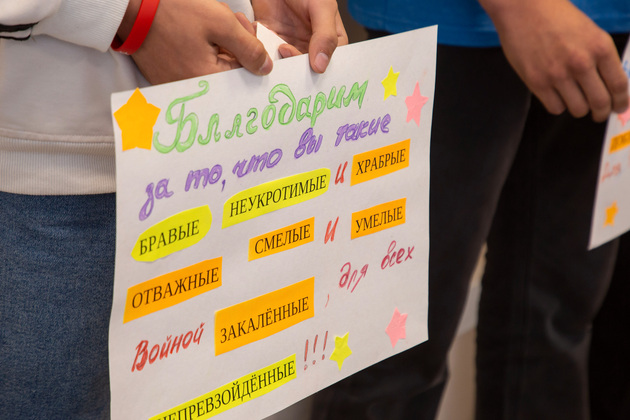 Благодарим
за то, что вы такие
БРАВЫЕ НЕУКРОТИМЫЕ и ХРАБРЫЕ
ОТВАЖНЫЕ СМЕЛЫЕ и УМЕЛЫЕ
Войной ЗАКАЛЁННЫЕ, для всех
НЕПРЕВЗОЙДЁННЫЕ!!!